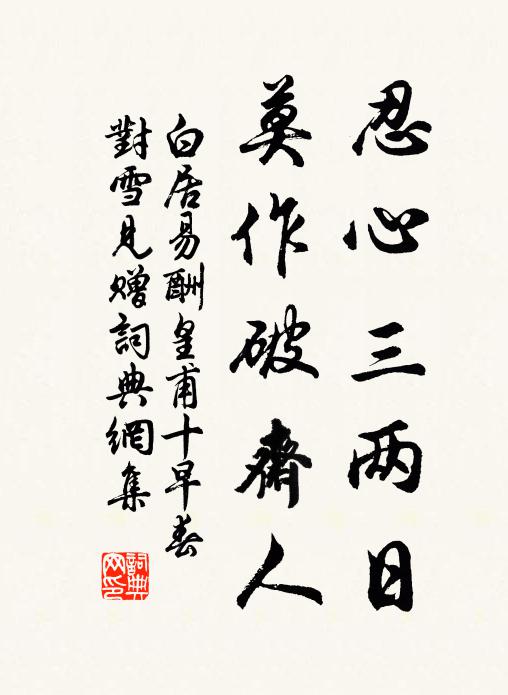 忍心三两日
莫作破齋人
白居易酬皇甫十早春
對雪見贈詞典網集
詞典
网印